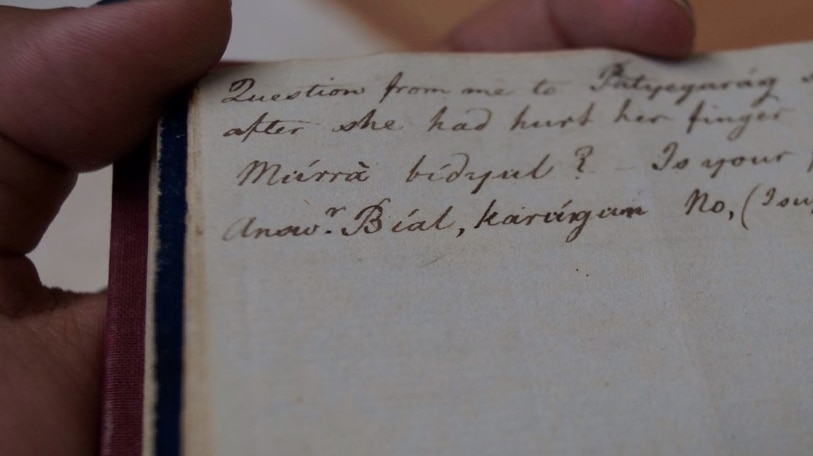 Question from me to Patyegaráng
after she had hurt her finger
Múrrà bídyul? – Is your
Answ.r Bíal, karúngun No, (I